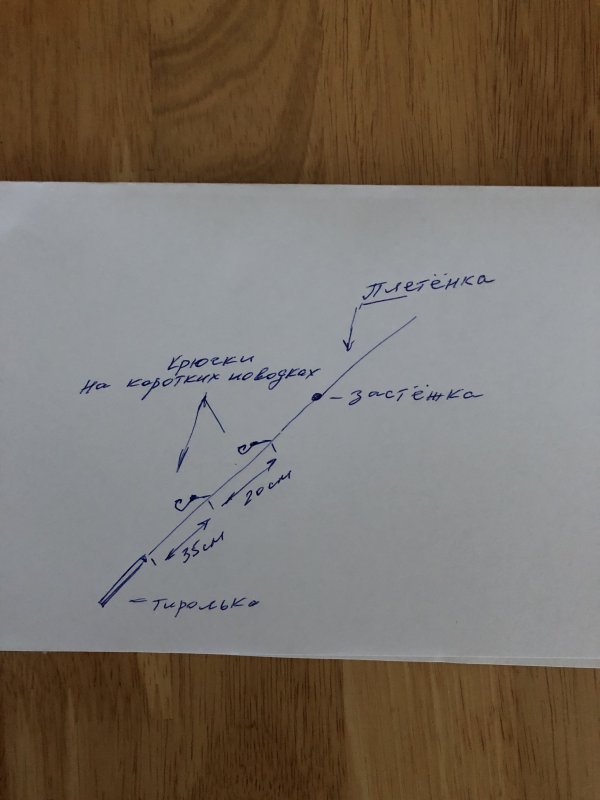 Плетёнка
Крючки
на коротких поводках
- застёжка
20см
35см
- тиролька